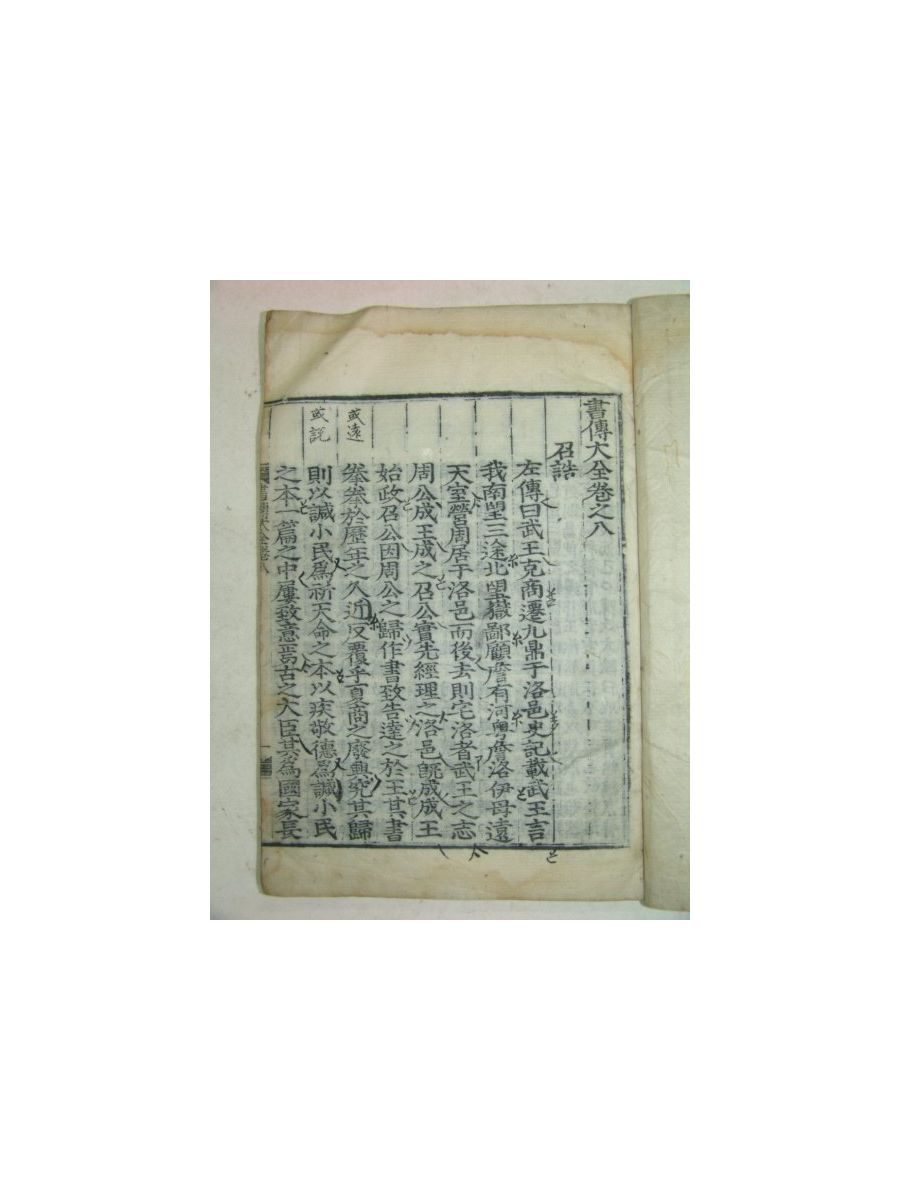 書傳大全卷之八
召誥
左傳曰武王克商遷九鼎于洛邑史記載武王言
我南望三途北望嶽鄙顧詹有河粵詹洛伊毋遠
天室營周居于洛邑而後去則宅洛者武王之志
周公成王成之召公實先經理之洛邑旣成成王
始政召公因周公之歸作書致告達之於王其書
拳拳於歷年之久近反覆乎夏商之廢興究其歸
則以諴小民爲祈天命之本以疾敬德爲諴小民
之本一篇之中屢致意焉古之大臣其爲國家長
或遠
或説
書傳大全卷八
一